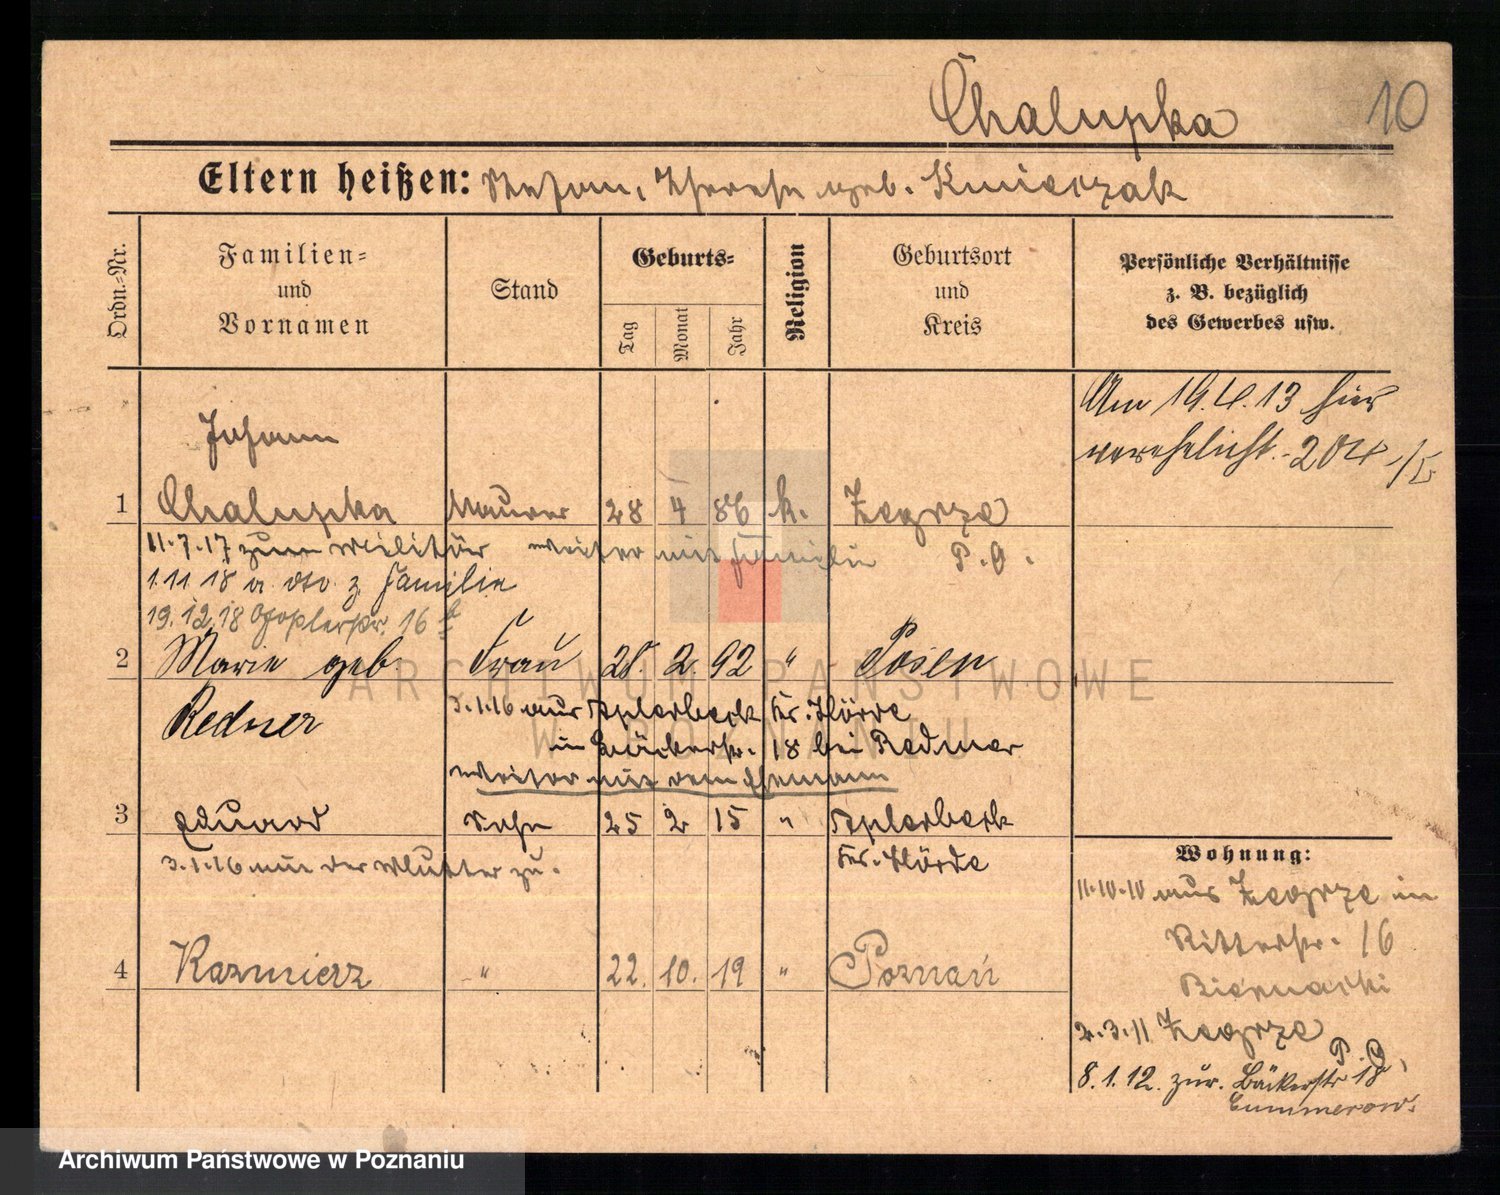 Chalupka 10
Eltern heißen: Stefan, Therese geb. Kmieczak
Ordn.=Nr.
Familien=
und
Vornamen
Stand
Geburts=
Tag
Monat
Jahr
Religion
Geburtsort
und
Kreis
Persönliche Verhältnisse
z. B. bezüglich
des Gewerbes usw.
Am 19.4.13 hier
verehelicht. - 204
Johann
1 Chalupka Maurer 28 4 86 k. Zegrze
11.7.17 zum Militär weiter mit Familie P.O.
1.11.18 a. z. Familie
19.12.18 16
2 Marie geb. Frau 2. 92 " Posen
Redner 3.1.16 aus Aplerbeck Kr. Hörde
in Bäckerstr. 18 bei Redner
weiter mit dem Ehemann
3 Eduard Sohn 25 2 15 " Aplerbeck
3.1.16 mit der Mutter zu. Kr. Hörde
4 Kazmierz " 22. 10. 19 " Poznań
Wohnung:
11.10.10 aus Zegrze in
Ritterstr. 16
Biernacki
2.3.11 Zegrze
P.O.
8.1.12. zur. Bäckerstr 18
Cummerow.
ARCHIWUM PAŃSTWOWE
W POZNANIU
Archiwum Państwowe w Poznaniu